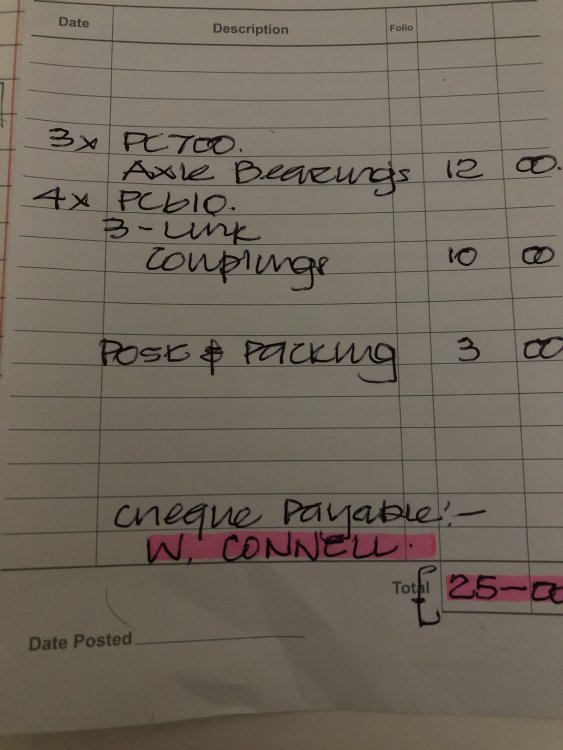 Date Description Folio
3x PC700.
Axle Bearings 12 00.
4x PC610.
3-Link
Couplings 10 00
Post & Packing 3 00
Cheque Payable:-
W. CONNELL.
Total £ 25-00
Date Posted